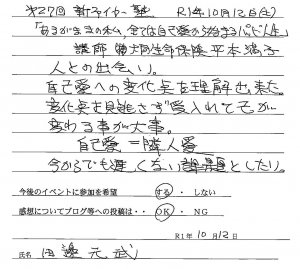 第27回 新ライカー塾 R1年10月12日(土)
「あるがままの私、全ては自己愛から始まるハッピー人生」
講師 第一生命保険 平本
人との出会い。
自己愛への変化兵を理解出来た。
変化兵を見逃さず受入れて己が
変わる事が大事。
自己愛=隣人愛
今からでも遅くない課題としたい。
今後のイベントに参加を希望 する ・ しない
感想についてブログ等への投稿は・・ OK ・ NG
R1年10月12日
氏名 田邊元武